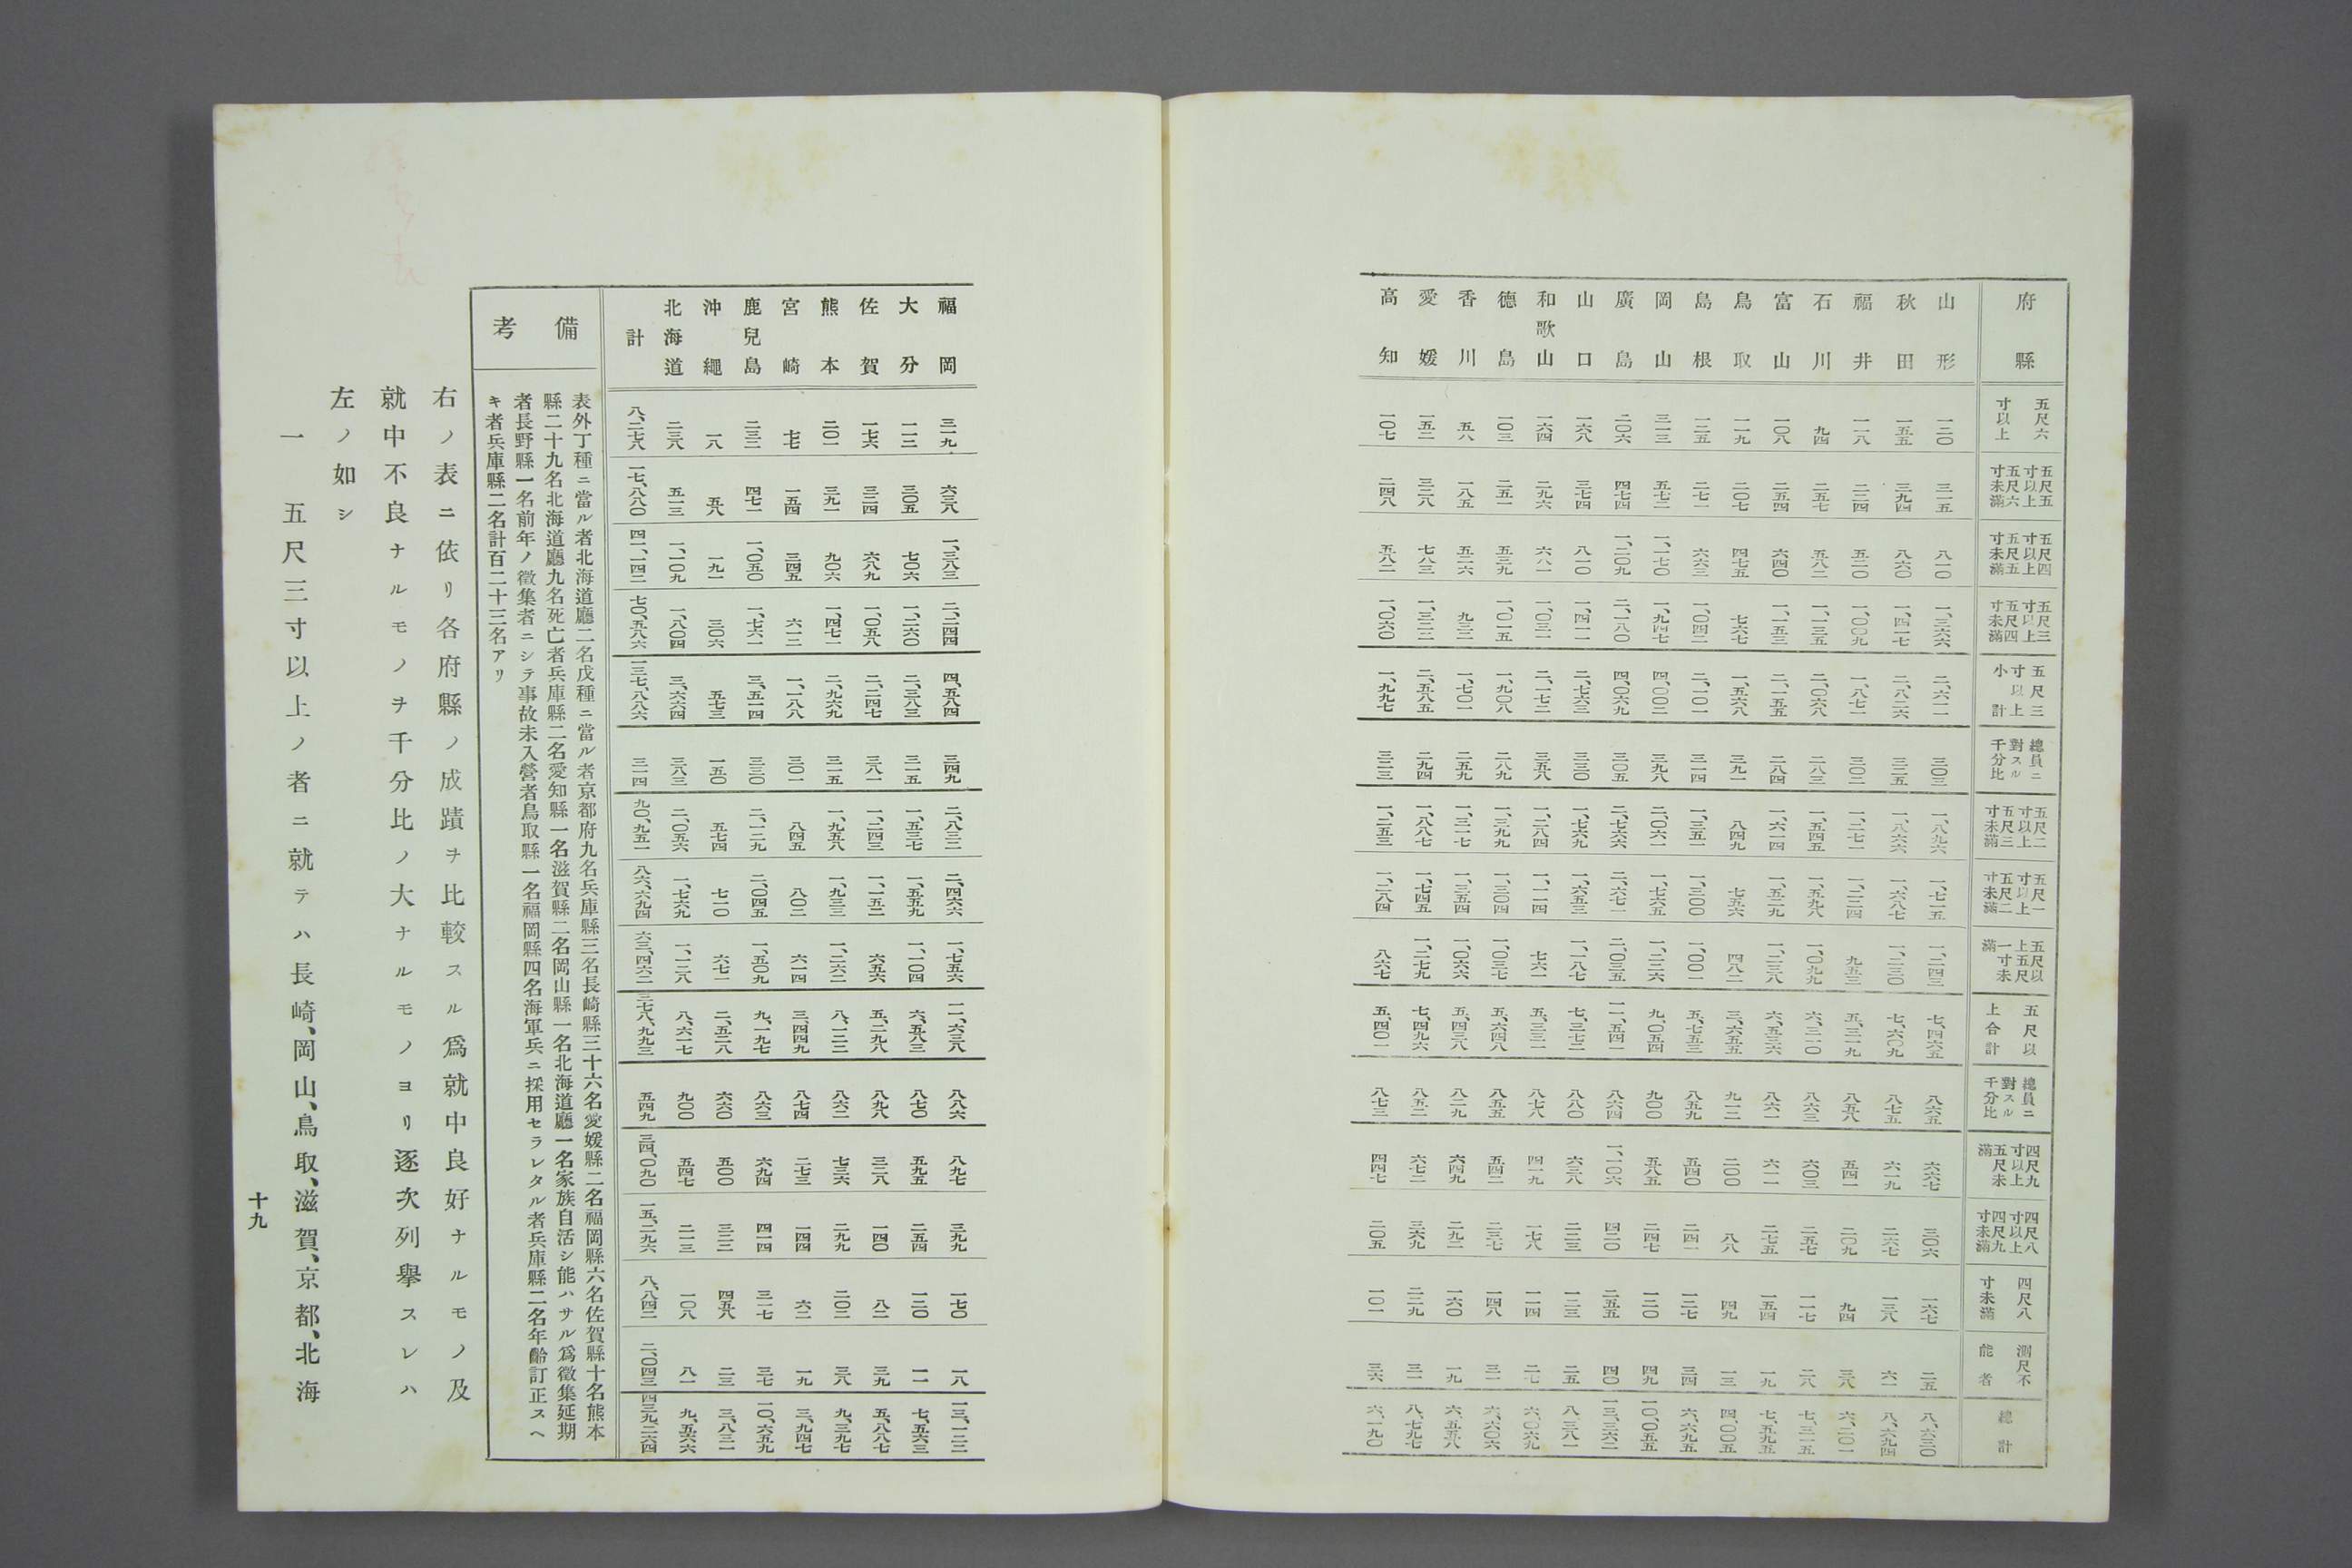 府縣 五尺六寸以上 五尺五寸以上五尺六寸未滿 五尺四寸以上五尺五寸未滿 五尺三寸以上五尺四寸未滿 五尺三寸以上小計 總員ニ對スル千分比 五尺二寸以上五尺三寸未滿 五尺一寸以上五尺二寸未滿 五尺以上五尺一寸未滿 五尺以上合計 總員ニ對スル千分比 四尺九寸以上五尺未滿 四尺八寸以上四尺九寸未滿 四尺八寸未滿 測尺不能者 總計
山形 一二〇 三一五 八一〇 一、三六六 二、六一一 三〇三 一、八九六 一、七一五 一、二四三 七、四六五 八六五 六六七 三〇六 一六七 二五 八、六三〇
秋田 一五五 三九四 八六〇 一、四一七 二、八二六 三二五 一、八六六 一、六八七 一、二三〇 七、六〇九 八七五 六一九 二六七 一三八 六一 八、六九四
福井 一一八 二二四 五二〇 一、〇〇九 一、八七一 三〇二 一、二七一 一、二二四 九五三 五、三一九 八五八 五四一 二〇九 九四 三八 六、二〇一
石川 九四 二五七 五八二 一、一三五 二、〇六八 二八三 一、五四五 一、五九八 一、〇九九 六、三一〇 八六三 六〇三 二五七 一一七 二八 七、三一五
富山 一〇八 二五四 六四〇 一、一五三 二、一五五 二八四 一、六一四 一、五二九 一、二三八 六、五三六 八六一 六一一 二七五 一五四 一九 七、五九五
鳥取 一一九 二〇七 四七五 七六七 一、五六八 三九一 八四九 七五六 四八二 三、六五五 九一二 二〇〇 八八 四九 一三 四、〇〇五
島根 一二五 二七一 六六三 一、〇四二 二、一〇一 三一四 一、三五一 一、三〇〇 一、〇〇一 五、七五三 八五九 五四〇 二四一 一二七 三四 六、六九五
岡山 三一三 五七二 一、一七〇 一、九四七 四、〇〇二 三九八 二、〇六一 一、七六五 一、二二六 九、〇五四 九〇〇 五八五 二四七 一二〇 四九 一〇、〇五五
廣島 二〇六 四七四 一、二〇九 二、一八〇 四、〇六九 三〇五 二、七六六 二、六七一 二、〇三五 一一、五四一 八六四 一、一〇六 四二〇 二五五 四〇 一三、三六二
山口 一六八 三七四 八一〇 一、四一一 二、七六三 三三〇 一、七六九 一、六五三 一、一八七 七、三七二 八八〇 六三八 二二三 一二三 二五 八、三八一
和歌山 一六四 二九六 六八一 一、〇三一 二、一七二 三五八 一、二八四 一、一一四 七六一 五、三三一 八七八 四一九 一七八 一一四 二七 六、〇六九
德島 一〇三 二五一 五三九 一、〇一五 一、九〇八 二八九 一、三九九 一、三〇四 一、〇三七 五、六四八 八五五 五四二 二三七 一四八 三一 六、六〇六
香川 五八 一八五 五二六 九三二 一、七〇一 二五九 一、三一七 一、三五四 一、〇六六 五、四三八 八二九 六四九 二九二 一六〇 一九 六、五五八
愛媛 一五二 三二八 七八三 一、三二二 二、五八五 二九四 一、八八七 一、七四五 一、二七九 七、四九六 八五二 六七二 三六九 二二九 三一 八、七九七
高知 一〇七 二四八 五八二 一、〇六〇 一、九九七 三二三 一、二五三 一、二八四 八六七 五、四〇一 八七三 四四七 二〇五 一〇一 三六 六、一九〇
福岡 三一九 六三八 一、三八三 二、二四四 四、五八四 三四九 二、八三二 二、四六六 一、七五六 一一、六三八 八八六 八九七 三九九 一七〇 一八 一三、一二二
大分 一一二 三〇五 七〇六 一、二六〇 二、三八三 三一五 一、五三七 一、五五九 一、一〇四 六、五八三 八七〇 五九五 二五四 一二〇 一一 七、五六三
佐賀 一七六 三二四 六八九 一、〇五八 二、二四七 三八一 一、二四三 一、一五二 六五六 五、二九八 八九八 三二八 一四〇 八二 三九 五、八八七
熊本 二〇一 三九一 九〇六 一、四七一 二、九六九 三一五 一、九五八 一、九三三 一、二六二 八、一二二 八六二 七三六 二九九 二〇二 三八 九、三九七
宮崎 七七 一五四 三四五 六一二 一、一八八 三〇一 八四五 八〇二 六一四 三、四四九 八七四 二七三 一四四 六二 一九 三、九四七
鹿兒島 二三二 四七一 一、〇五〇 一、七六一 三、五一四 三三〇 二、一二九 二、〇四五 一、五〇九 九、一九七 八六三 六九四 四一四 三一七 三七 一〇、六五九
沖繩 一八 五八 一九一 三〇六 五七三 一五〇 五七四 七一〇 六七一 二、五二八 六六〇 五〇〇 三二二 四五八 二三 三、八三一
北海道 二三八 五一三 一、一〇九 一、八〇四 三、六六四 三八三 二、〇五六 一、七六九 一、一二八 八、六一七 九〇〇 五四七 二一三 一〇八 八一 九、五六六
計 八、二七八 一七、八八〇 四一、一四二 七〇、五八六 一三七、八八六 三一四 九〇、九五一 八六、六九四 六三、四六二 三七八、九九三 五四九 三四、〇九〇 一五、二九六 八、八四二 二、〇四三 四三九、二六四
備考
表外丁種ニ當ル者北海道廳二名戊種ニ當ル者京都府九名兵庫縣三名長崎縣三十六名愛媛縣二名福岡縣六名佐賀縣十名熊本
縣二十九名北海道廳九名死亡者兵庫縣二名愛知縣一名滋賀縣二名岡山縣一名北海道廳一名家族自活シ能ハサル爲徵集延期
者長野縣一名前年ノ徵集者ニシテ事故未入營者鳥取縣一名福岡縣四名海軍兵ニ採用セラレタル者兵庫縣二名年齡訂正スヘ
キ者兵庫縣二名計百二十三名アリ
右ノ表ニ依リ各府縣ノ成蹟ヲ比較スル爲就中良好ナルモノ及
就中不良ナルモノヲ千分比ノ大ナルモノヨリ逐次列擧スレハ
左ノ如シ
一 五尺三寸以上ノ者ニ就テハ長崎、岡山、鳥取、滋賀、京都、北海
十九